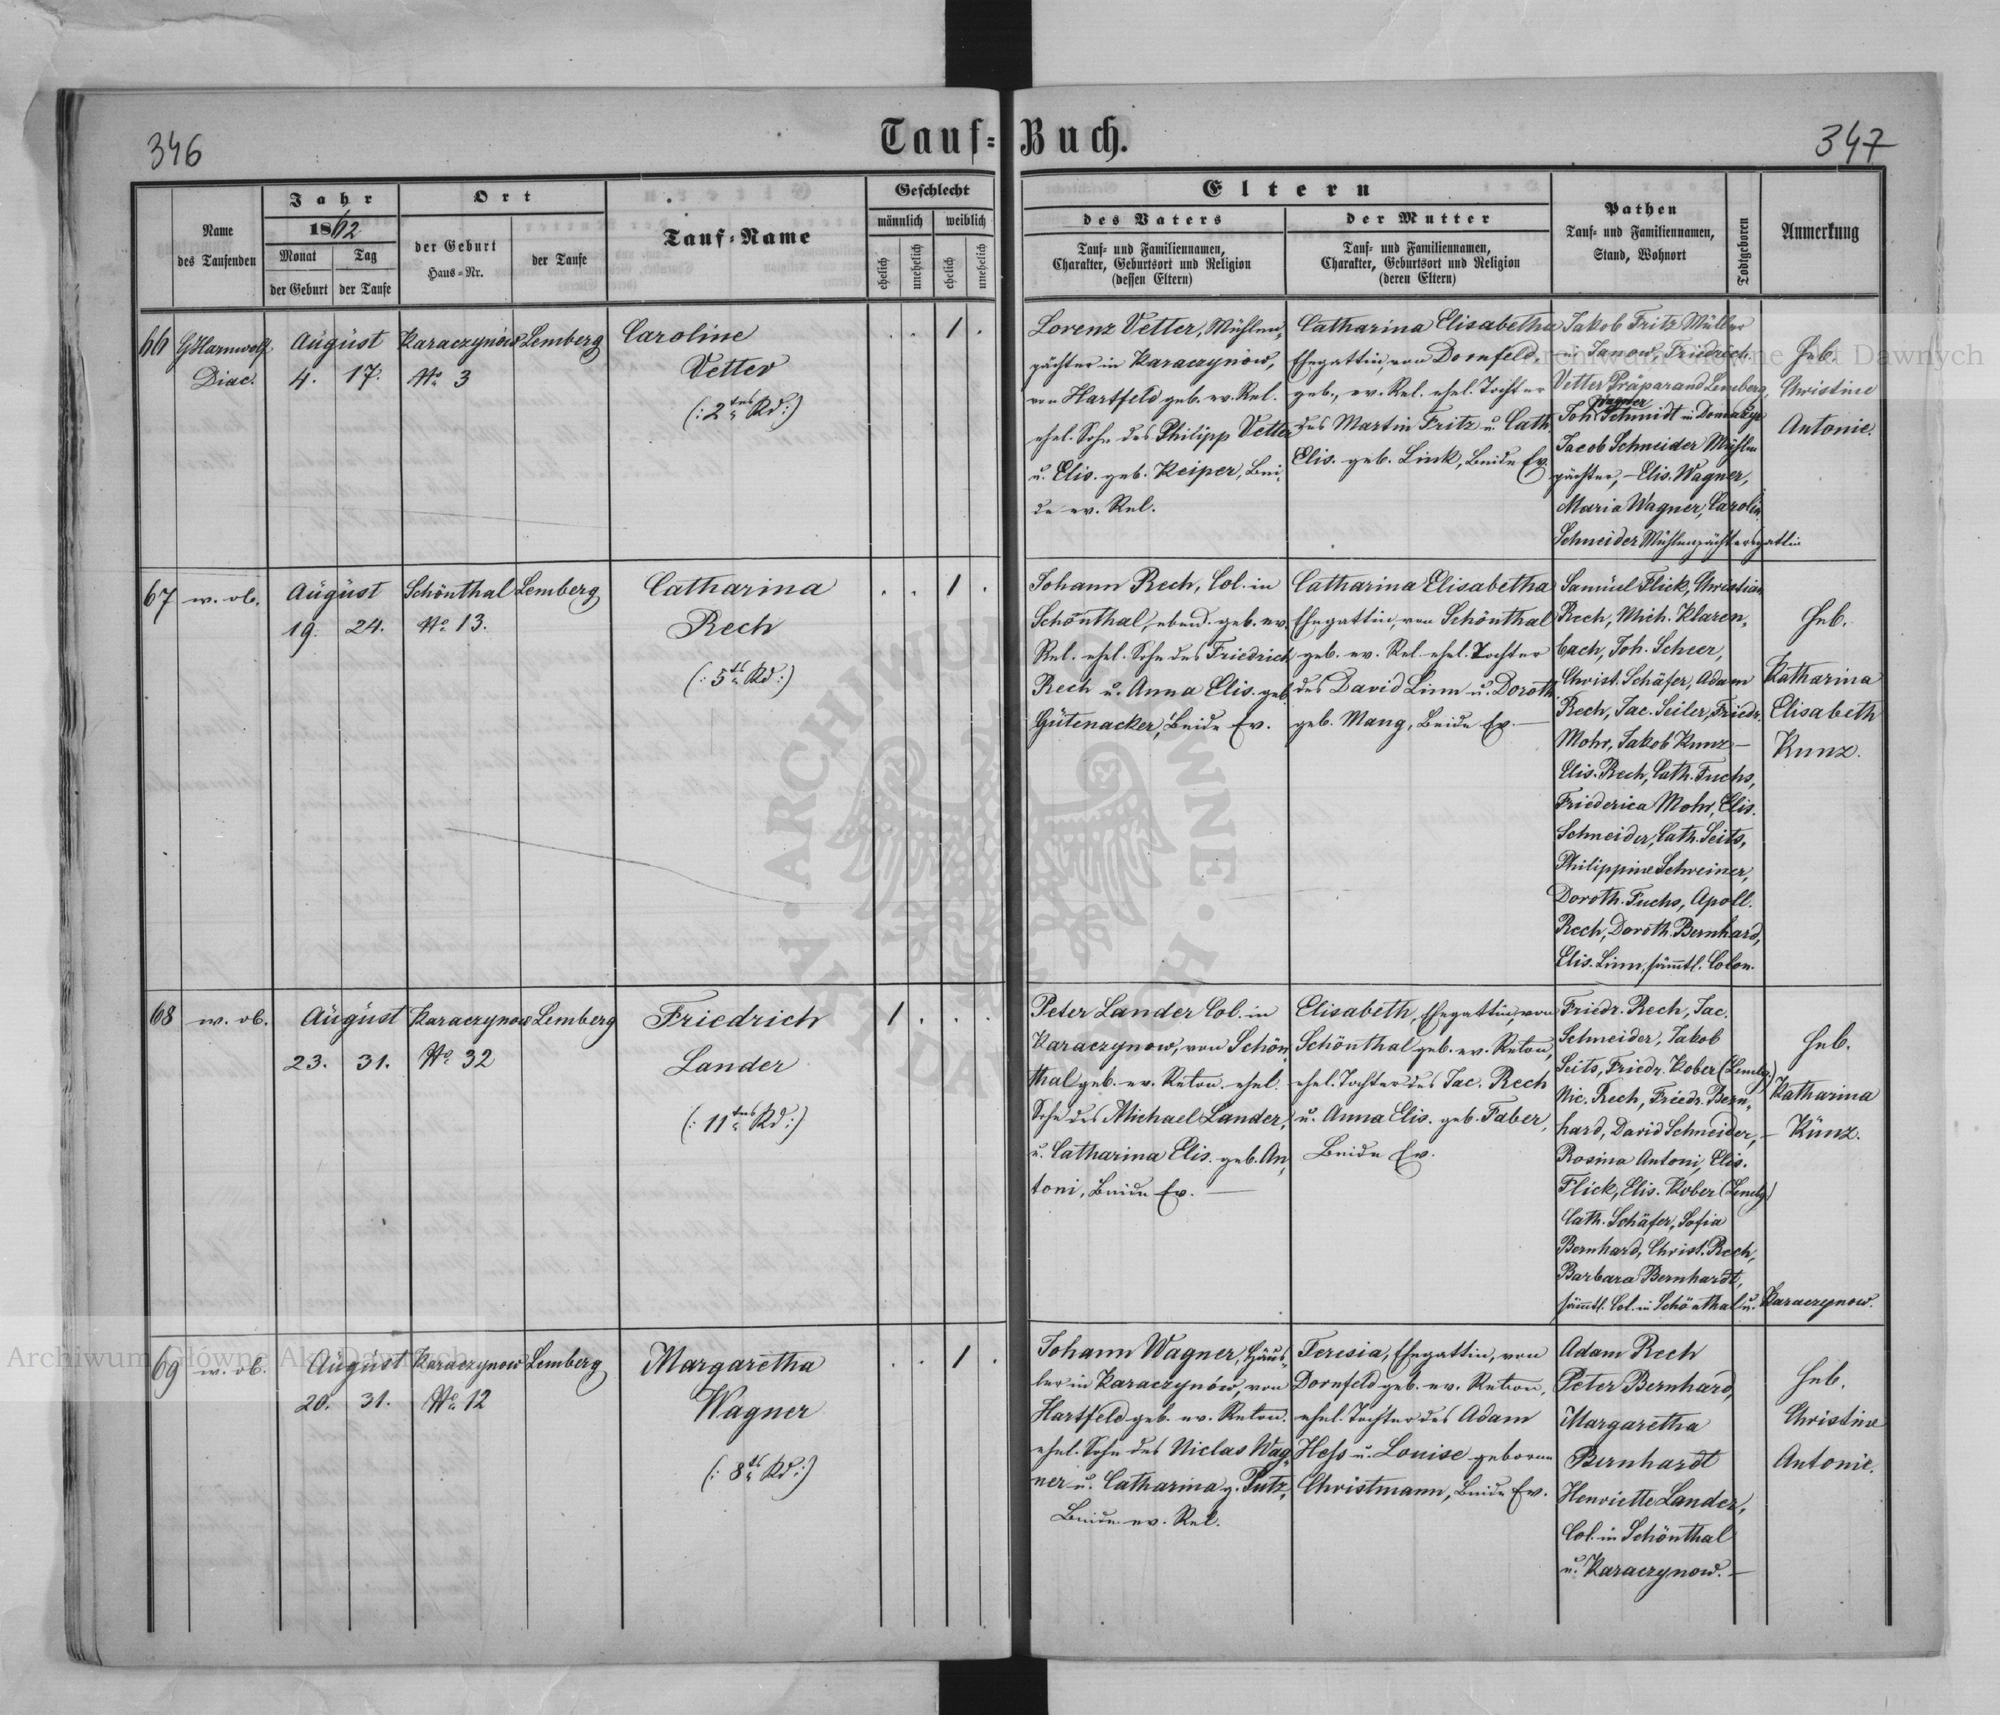 346
Tauf-Buch.
347
Name
des Taufenden
Jahr
1862
Monat
der Geburt
Tag
der Taufe
Ort
der Geburt
Haus-Nr.
der Taufe
Tauf-Name
Geschlecht
männlich
weiblich
ehelich
unehelich
ehelich
unehelich
Eltern
des Vaters
Tauf- und Familiennamen,
Charakter, Geburtsort und Religion
(dessen Eltern)
der Mutter
Tauf- und Familiennamen,
Charakter, Geburtsort und Religion
(deren Eltern)
Pathen
Tauf- und Familiennamen,
Stand, Wohnort
Todtgeboren
Anmerkung
66
Diac.
August
4. 17.
Karaczynów
No 3
Lemberg
Caroline
Vetter
(: 2tes Kd :)
. . 1 .
Lorenz Vetter, Mühlen-
pächter in Karaczynów,
von Hartfeld geb. ev. Rel.
ehel. Sohn des Philipp Vetter
u. Elis. geb. Keiper, Bei-
de ev. Rel.
Catharina Elisabetha
Ehegattin, von Dornfeld,
geb., ev. Rel. ehel. Tochter
des Martin Fritz u. Cath.
Elis. geb. Link, Beide Ev.
Jakob Fritz Müller
in Janow, Friedrich
Vetter Präparand Lemberg,
Wagner
Joh. Schmidt in
Jacob Schneider Mühlen
pächter, – Elis. Wagner,
Maria Wagner, Carolin
Schneider Mühlenpächtersgattin
Heb.
Christine
Antonie.
67
w. ob.
August
19. 24.
Schönthal
No 13.
Lemberg
Catharina
Rech
(: 5tes Kd :)
. . 1 .
Johann Rech, Col. in
Schönthal, ebend. geb. ev.
Rel. ehel. Sohn des Friedrich
Rech u. Anna Elis. geb.
Gutenacker, Beide Ev.
Catharina Elisabetha
Ehegattin, von Schönthal
geb. ev. Rel. ehel. Tochter
des David Linn u. Doroth.
geb. Mang, Beide Ev. –
Samuel Flick, Christian
Rech, Mich. Klaren-
bach, Joh. Scheer,
Christ. Schäfer, Adam
Rech, Jac. Seiler, Friedr.
Mohr, Jakob Kunz –
Elis. Rech, Cath. Fuchs,
Friederica Mohr, Elis.
Schneider, Cath. Seits,
Philippine Schreiner,
Doroth. Fuchs, Apoll.
Rech, Doroth. Bernhard,
Elis. Linn, sämmtl. Colon.
Heb.
Katharina
Elisabeth
Kunz.
68
w. ob.
August
23. 31.
Karaczynow
No 32
Lemberg
Friedrich
Lander
(: 11tes Kd :)
1 . . .
Peter Lander Col. in
Karaczynow, von Schön-
thal geb. ev. Relon. ehel.
Sohn des Michael Lander,
u. Catharina Elis. geb. An-
toni, Beide Ev. –
Elisabeth, Ehegattin, von
Schönthal geb. ev. Relon,
ehel. Tochter des Jac. Rech
u. Anna Elis. geb. Faber,
Beide Ev.
Friedr. Rech, Jac.
Schneider, Jakob
Seits, Friedr. Kober (Lembg.)
Nic. Rech, Friedr. Bern-
hard, David Schneider, –
Rosina Antoni, Elis.
Flick, Elis. Kober (Lembg)
Cath. Schäfer, Sofia
Bernhard, Christ. Rech,
Barbara Bernhardt,
sämmtl. Col. in Schönthal u. Karaczynow.
Heb.
Katharina
Kunz.
69
w. ob.
August
20. 31.
Karaczynow
No 12
Lemberg
Margaretha
Wagner
(: 8tes Kd :)
. . 1 .
Johann Wagner, Häus-
ler in Karaczynów, von
Hartfeld geb. ev. Relon.
ehel. Sohn des Niclas Wag-
ner u. Catharina g. Putz,
Beide ev. Rel.
Teresia, Ehegattin, von
Dornfeld geb. ev. Relion,
ehel. Tochter des Adam
Heß u. Louise geborne
Christmann, Beide Ev.
Adam Rech
Peter Bernhard,
Margaretha
Bernhardt
Henriette Lander,
Col. in Schönthal
u. Karaczynow. –
Heb.
Christine
Antonie.
Archiwum Główne Akt Dawnych
Archiwum Główne Akt Dawnych